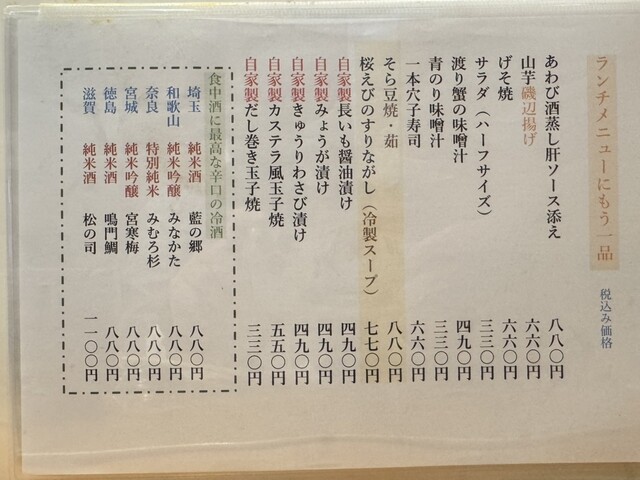 ランチメニューにもう一品
税込み価格
あわび酒蒸し肝ソース添え 八八〇円
山芋磯辺揚げ 六六〇円
げそ焼 六六〇円
サラダ（ハーフサイズ） 三三〇円
渡り蟹の味噌汁 四九〇円
青のり味噌汁 三三〇円
一本穴子寿司 六六〇円
そら豆焼・茹 八八〇円
桜えびのすりながし（冷製スープ） 七七〇円
自家製長いも醤油漬け 四九〇円
自家製みょうが漬け 四九〇円
自家製きゅうりわさび漬け 四九〇円
自家製カステラ風玉子焼 五五〇円
自家製だし巻き玉子焼 三三〇円
食中酒に最高な辛口の冷酒
埼玉 純米酒 藍の郷 八八〇円
和歌山 純米吟醸 みなかた 八八〇円
奈良 特別純米 みむろ杉 八八〇円
宮城 純米吟醸 宮寒梅 八八〇円
徳島 純米酒 鳴門鯛 八八〇円
滋賀 純米酒 松の司 一一〇〇円